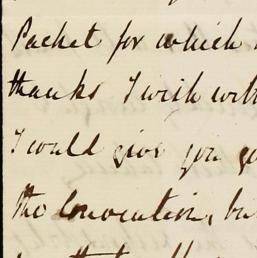 Packet for which
thanks I wish with
I would give you
the Convention, bu